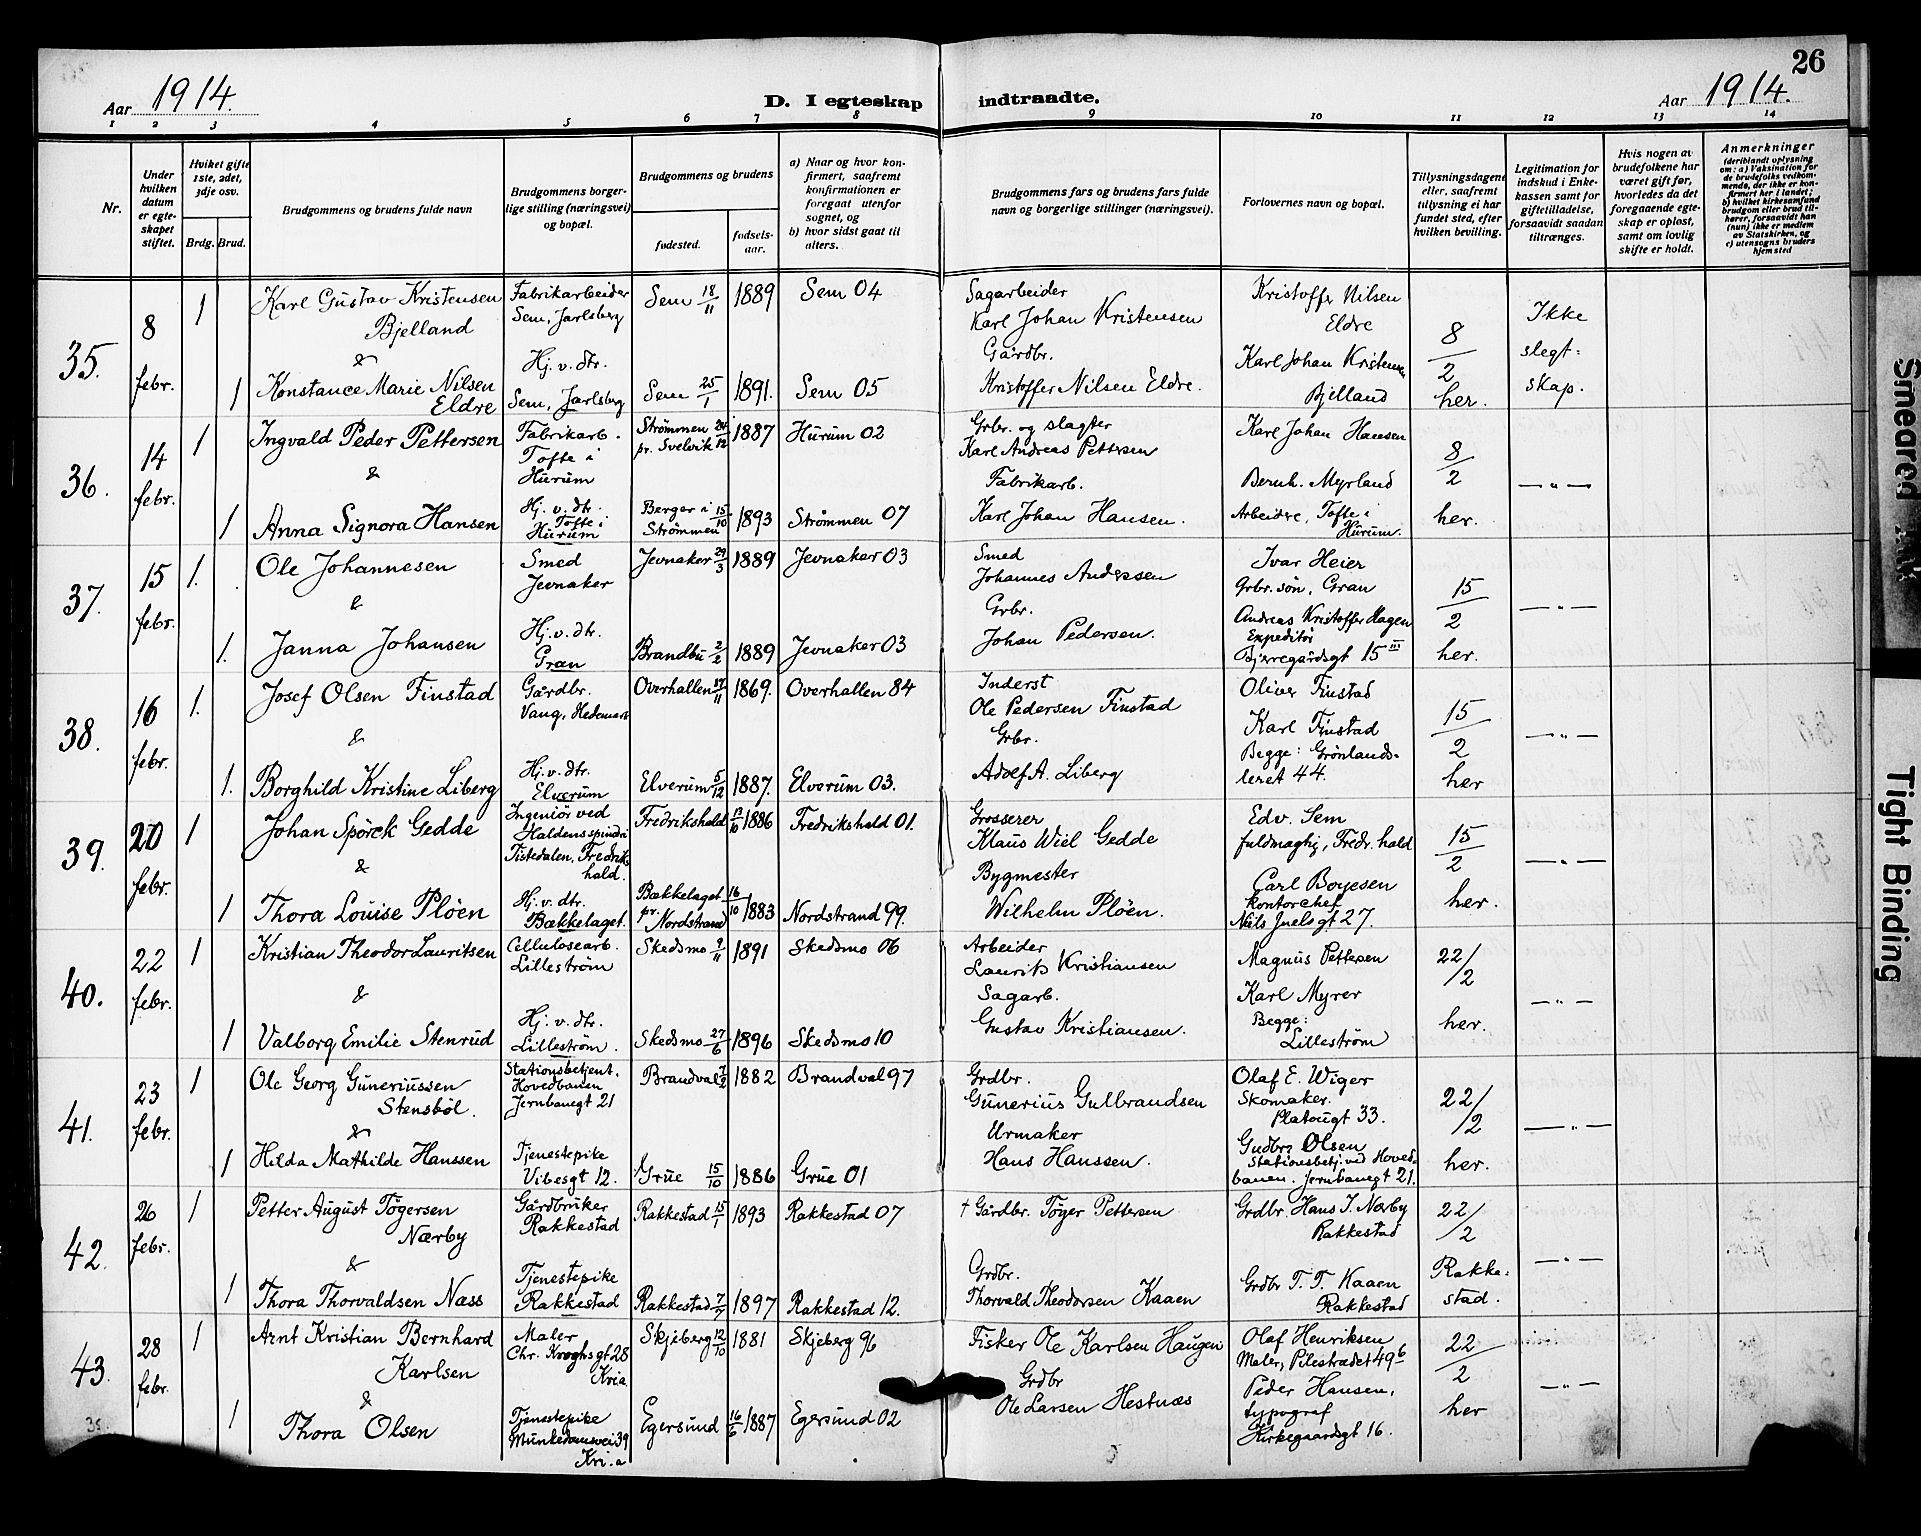 26
Aar 1914.
D. I egteskap indtraadte.
Aar 1914.
1 2 3 4 5 6 7 8 9 10 11 12 13 14
Nr.
Under hvilken datum er egteskapet stiftet.
Hviket gifte 1ste, 2det, 3dje osv.
Brdg. Brud.
Brudgommens og brudens fulde navn
Brudgommens borgerlige stilling (næringsvei) og bopæl.
Brudgommens og brudens
fødested.
fødselsaar.
a) Naar og hvor konfirmert, saafremt konfirmationen er foregaat utenfor sognet, og
b) hvor sidst gaat til alters.
Brudgommens fars og brudens fars fulde navn og borgerlige stillinger (næringsvei).
Forlovernes navn og bopæl.
Tillysningsdagene eller, saafremt tillysning ei har fundet sted, efter hvilken bevilling.
Legitimation for indskud i Enkekassen samt for giftetilladelse, forsaavidt saadan tiltrænges.
Hvis nogen av brudefolkene har været gift før, hvorledes da det foregaaende egteskap er opløst, samt om lovlig skifte er holdt.
Anmerkninger
(deriblandt oplysning om: a) Vaksination for de brudefolks vedkommende, der ikke er konfirmert her i landet; b) hvilket kirkesamfund brudgom eller brud tilhører, forsaavidt han (hun) ikke er medlem av Statskirken, og c) utensogns bruders hjemsted
35. 8 febr. 1 Karl Gustav Kristensen Bjelland
Fabrikarbeider Sem, Jarlsberg
Sem 18/11 1889 Sem 04
Sagarbeider Karl Johan Kristensen
Kristoffer Nilsen Eldre
8/2 her.
Ikke slegtskap.
&
1 Konstance Marie Nilsen Eldre
Hj. v. dtr. Sem, Jarlsberg
Sem 25/1 1891. Sem 05
Gårdbr. Kristoffer Nilsen Eldre.
Karl Johan Kristensen Bjelland
36. 14 febr. 1 Ingvald Peder Pettersen
Fabrikarb. Tofte i Hurum
Strømmen pr. Svelvik 24/12 1887 Hurum 02
Grbr. og slagter Karl Andreas Pettersen
Karl Johan Hansen
8/2 her.
—"—
&
1 Anna Signora Hansen
Hj. v. dtr. Tofte i Hurum
Berger i Strømmen 15/10 1893 Strømmen 07
Fabrikarb. Karl Johan Hansen.
Bernh. Myrland
Arbeidere, Tofte i Hurum.
37. 15 febr. 1. Ole Johannesen
Smed Jevnaker
Jevnaker 29/3 1889 Jevnaker 03
Smed Johannes Anderssen
Ivar Heier Grbr. søn, Gran
15/2 her.
—"—
&
1. Janna Johansen
Hj. v. dtr. Gran
Brandbu 2/2 1889 Jevnaker 03
Grbr. Johan Pedersen.
Andreas Kristoffer Hagen Expeditør Bjerregårdsgt 15 III
38. 16 febr. 1. Josef Olsen Finstad
Gårdbr. Vang, Hedemark
Overhallen 17/11 1869. Overhallen 84
Inderst Ole Pedersen Finstad
Oliver Finstad
15/2 her
—"—
&
1. Borghild Kristine Liberg
Hj. v. dtr. Elverum
Elverum 5/12 1887. Elverum 03.
Grbr. Adolf A. Liberg
Karl Finstad
Begge: Grønlandsleret 44.
39. 20 febr. 1 Johan Spörck Gedde
Ingeniör ved Haldens spinderi Tistedalen, Fredrikshald.
Fredrikshald 17/10 1886 Fredrikshald 01.
Grosserer Klaus Wiel Gedde
Edv. Sem fuldmægtig, Fredr.hald
15/2 her.
—"—
&
1 Thora Louise Plöen
Hj. v. dtr. Bækkelaget.
Bækkelaget pr. Nordstrand 16/10 1883 Nordstrand 99.
Bygmester Wilhelm Plöen.
Carl Boyesen kontorchef Niels Juels gt 27.
40. 22 febr. 1 Kristian Theodor Lauritsen
Cellulosearb. Lilleström
Skedsmo 9/11 1891 Skedsmo 06
Arbeider Laurits Kristiansen
Magnus Pettersen
22/2 her.
—"—
&
1 Valborg Emilie Stenrud
Hj. v. dtr. Lilleström.
Skedsmo 27/6 1896 Skedsmo 10
Sagarb. Gustav Kristiansen.
Karl Myrer
Begge: Lilleström
41. 23 febr. 1 Ole Georg Guneriussen Stensböl.
Stationsbetjent. Hovedbanen Jernbanegt 21
Brandval 7/2 1882 Brandval 97
Grdbr. Gunerius Gulbrandsen
Olaf E. Wiger Skomaker. Platougt 33.
22/2 her.
—"—
&
1 Hilda Mathilde Hanssen
Tjenestepike Vibesgt 12.
Grue 15/10 1886 Grue 01
Urmaker Hans Hanssen.
Gudbr. Olsen Stationsbetj. ved Hovedbanen. Jernbanegt 21.
42. 26 febr. 1 Petter August Tögersen Nærby
Gårdbruker Rakkestad
Rakkestad 15/1 1893 Rakkestad 07
† Gårdbr. Töger Pettersen
Grdbr. Hans J. Nærby Rakkestad
22/2 Rakkestad.
—"—
&
1 Thora Thorvaldsen Næss
Tjenestepike Rakkestad
Rakkestad 7/7 1897 Rakkestad 12.
Grdbr. Thorvald Theodorsen Kaaen
Grdbr T. T. Kaaen Rakkestad
43. 28 febr. 1 Arnt Kristian Bernhard Karlsen
Maler Chr. Kroghsgt 28 Kria
Skjeberg 12/10 1881 Skjeberg 96
Fisker Ole Karlsen Haugen
Olaf Henriksen Maler, Pilestrædet 49 b
22/2 her
—"—
&
1 Thora Olsen
Tjenestepike Munkedamsvei 39 Kri.a
Egersund 16/6 1887 Egersund 02
Grdbr Ole Larsen Hestnæs
Peder Hansen, typograf Kirkegaardsgt 16.
Smeared Ink
Tight Binding